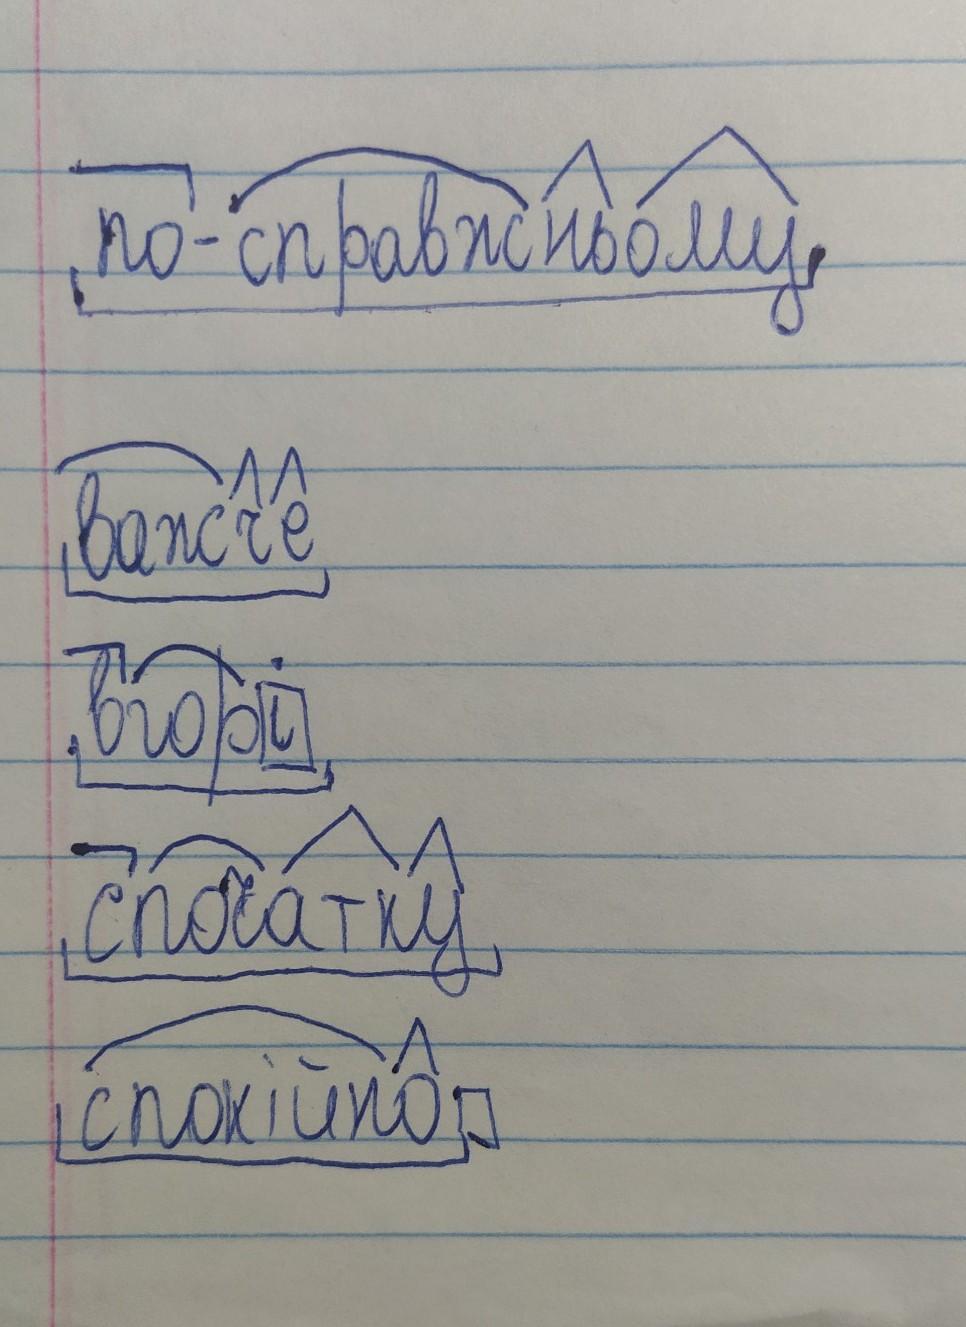 по-справжньому
важче
вгорі
спочатку
спокійно